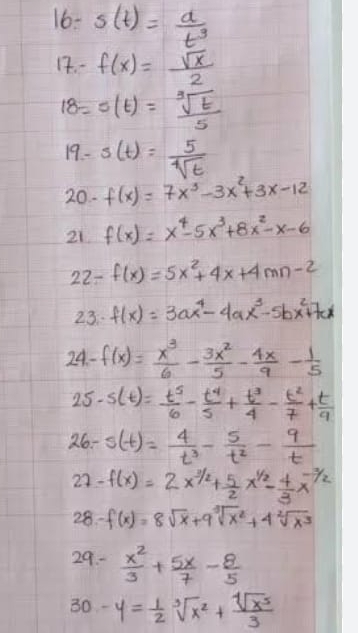 16- s(t) = a/t³
17.- f(x) = √x/2
18- s(t) = ³√t/5
19.- s(t) = 5/⁴√t
20.- f(x) = 7x³-3x²+3x-12
21. f(x) = x⁴-5x³+8x²-x-6
22- f(x) = 5x²+4x+4mn-2
23.- f(x) = 3ax⁴-4ax³-5bx²+7cx
24.- f(x) = x³/6 - 3x²/5 - 4x/9 - 1/5
25- s(t) = t⁵/6 - t⁴/5 + t³/4 - t²/7 + t/9
26.- s(t) = 4/t³ - 5/t² - 9/t
27- f(x) = 2x^3/2 + 5/2 x^1/2 - 4/3 x^-3/2
28.- f(x) = 8√x + 9³√x² + 4²√x³
29.- x²/3 + 5x/7 - 8/5
30.- y = 1/2 ³√x² + ⁴√x⁵/3